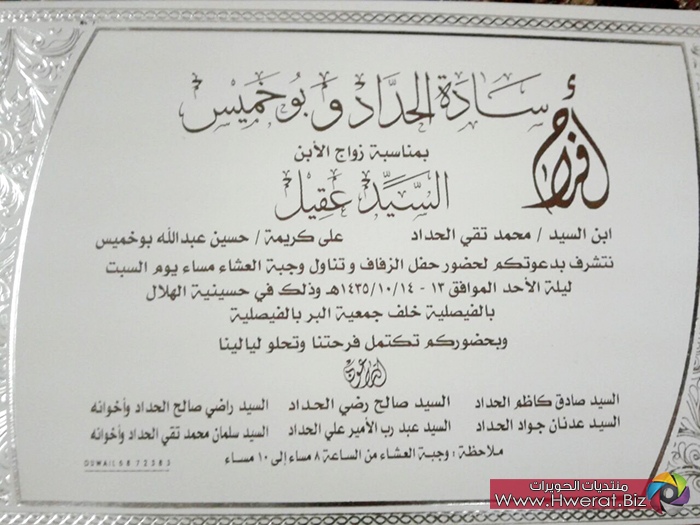 أفراح
سادة الحداد وبوخميس
بمناسبة زواج الأبن
السيد عقيل
ابن السيد / محمد تقي الحداد على كريمة / حسين عبدالله بوخميس
نتشرف بدعوتكم لحضور حفل الزفاف و تناول وجبة العشاء مساء يوم السبت
ليلة الأحد الموافق ١٣ - ١٤٣٥/١٠/١٤هـ وذلك في حسينية الهلال
بالفيصلية خلف جمعية البر بالفيصلية
وبحضوركم تكتمل فرحتنا وتحلو ليالينا
الداعون
السيد صادق كاظم الحداد السيد صالح رضي الحداد السيد راضي صالح الحداد وأخوانه
السيد عدنان جواد الحداد السيد عبد رب الأمير علي الحداد السيد سلمان محمد تقي الحداد وأخوانه
ملاحظة : وجبة العشاء من الساعة ٨ مساء إلى ١٠ مساء
منتديات الحويرات
www.Hwerat.Biz